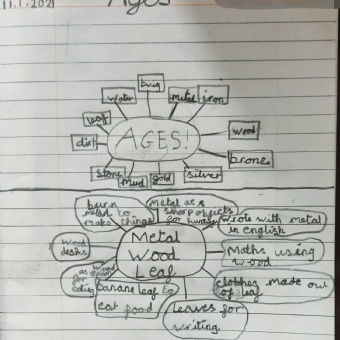 11.1.2021
Ages
twig
water
metal
iron
leaf
wood
AGES!
dirt
bronze
stone
mud
gold
silver
burn
metal to
make things
Metal as a
sharp objects
for hunting
wrote with metal
in english
Metal
Wood
Leaf
wood
desks
Maths using
wood
for
eating
banana leaf to
eat food
clothes made out
of leaf
leaves for
writing